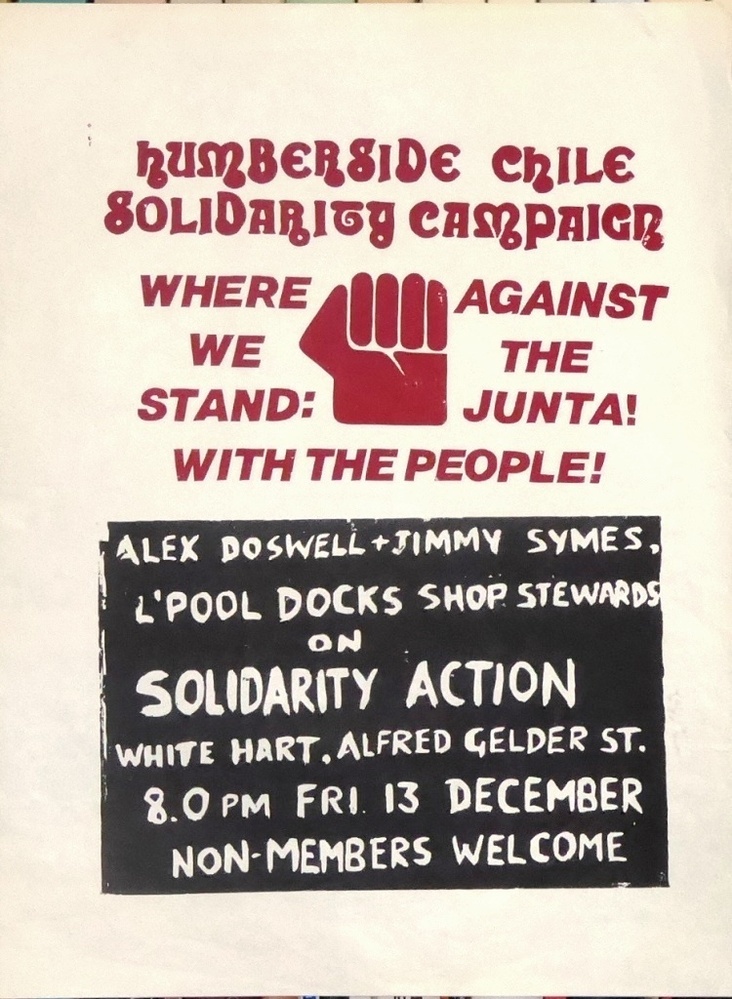 HUMBERSIDE CHILE
SOLIDARITY CAMPAIGN
WHERE
WE
STAND:
AGAINST
THE
JUNTA!
WITH THE PEOPLE!
ALEX DOSWELL + JIMMY SYMES,
L'POOL DOCKS SHOP STEWARDS
ON
SOLIDARITY ACTION
WHITE HART, ALFRED GELDER ST.
8.0 PM FRI. 13 DECEMBER
NON-MEMBERS WELCOME